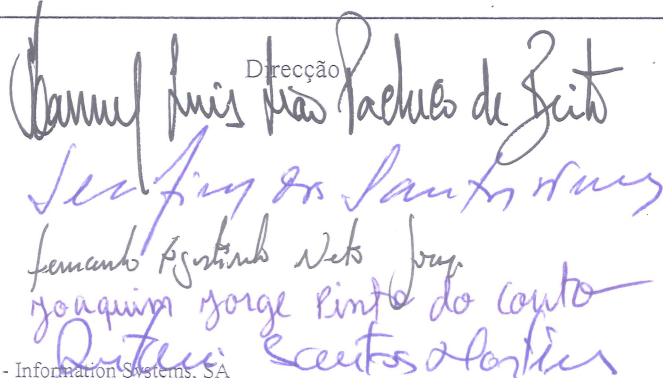 Direcção
Manuel Luis João Pacheco de Brito
Serafim dos Santos Nunes
Fernando Agostinho Neto Jorge
Joaquim Jorge Pinto do Couto
Santos Martins
- Information Systems, SA